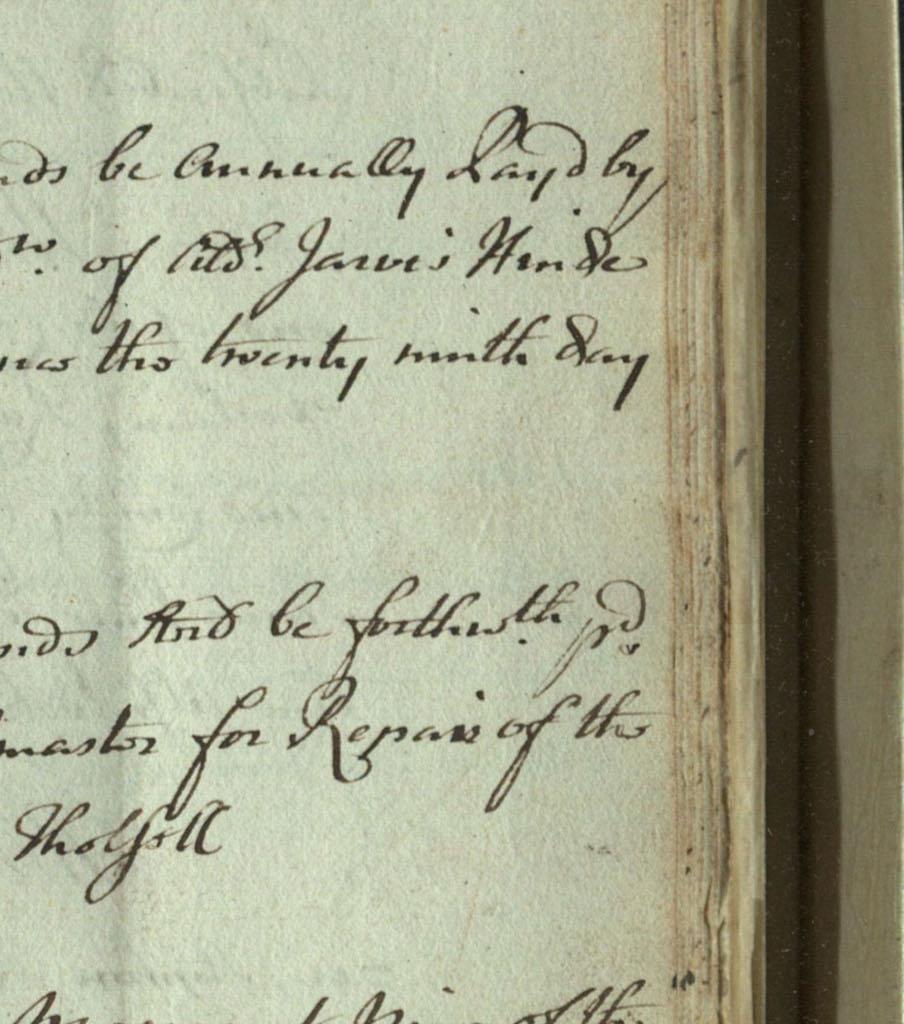 be Annually Pay'd by
of Ald:r Jarvis Hinde
the twenty ninth day
And be forthw:th pd.
master for Repair of the
Tholsell
of the